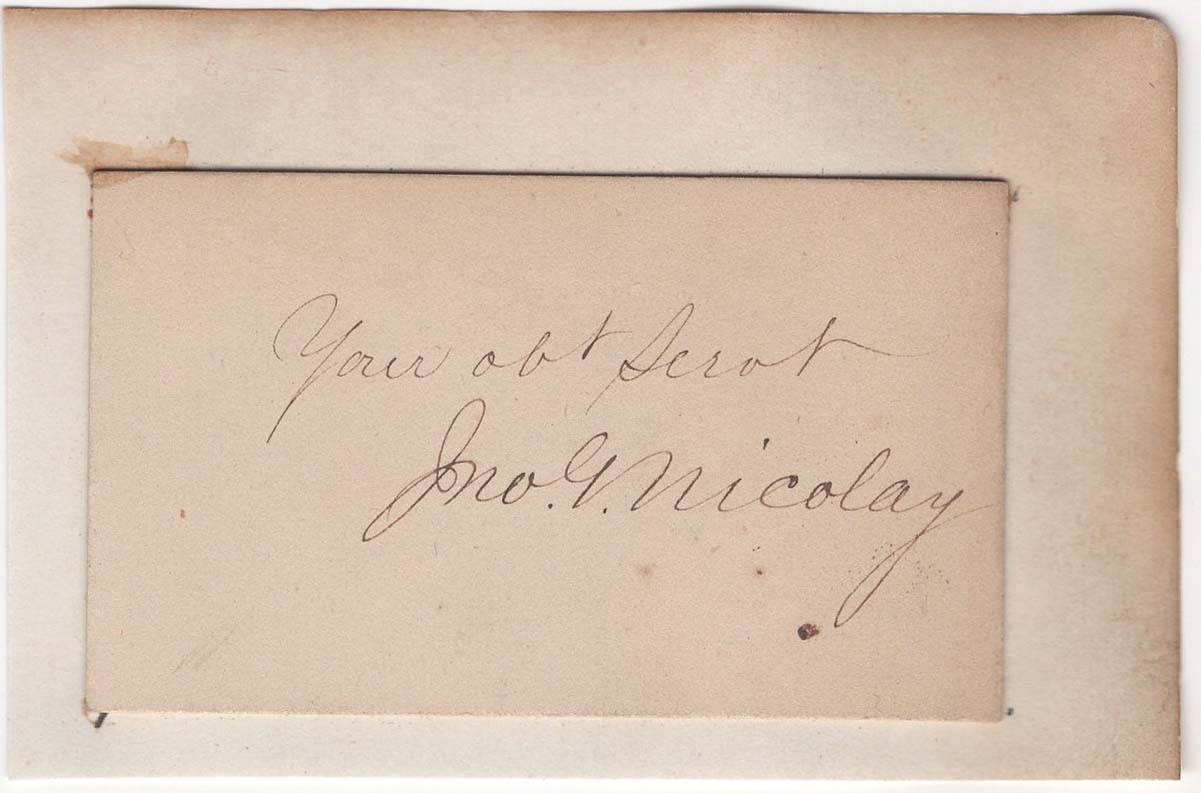 Your obt Servt
Jno. G. Nicolay